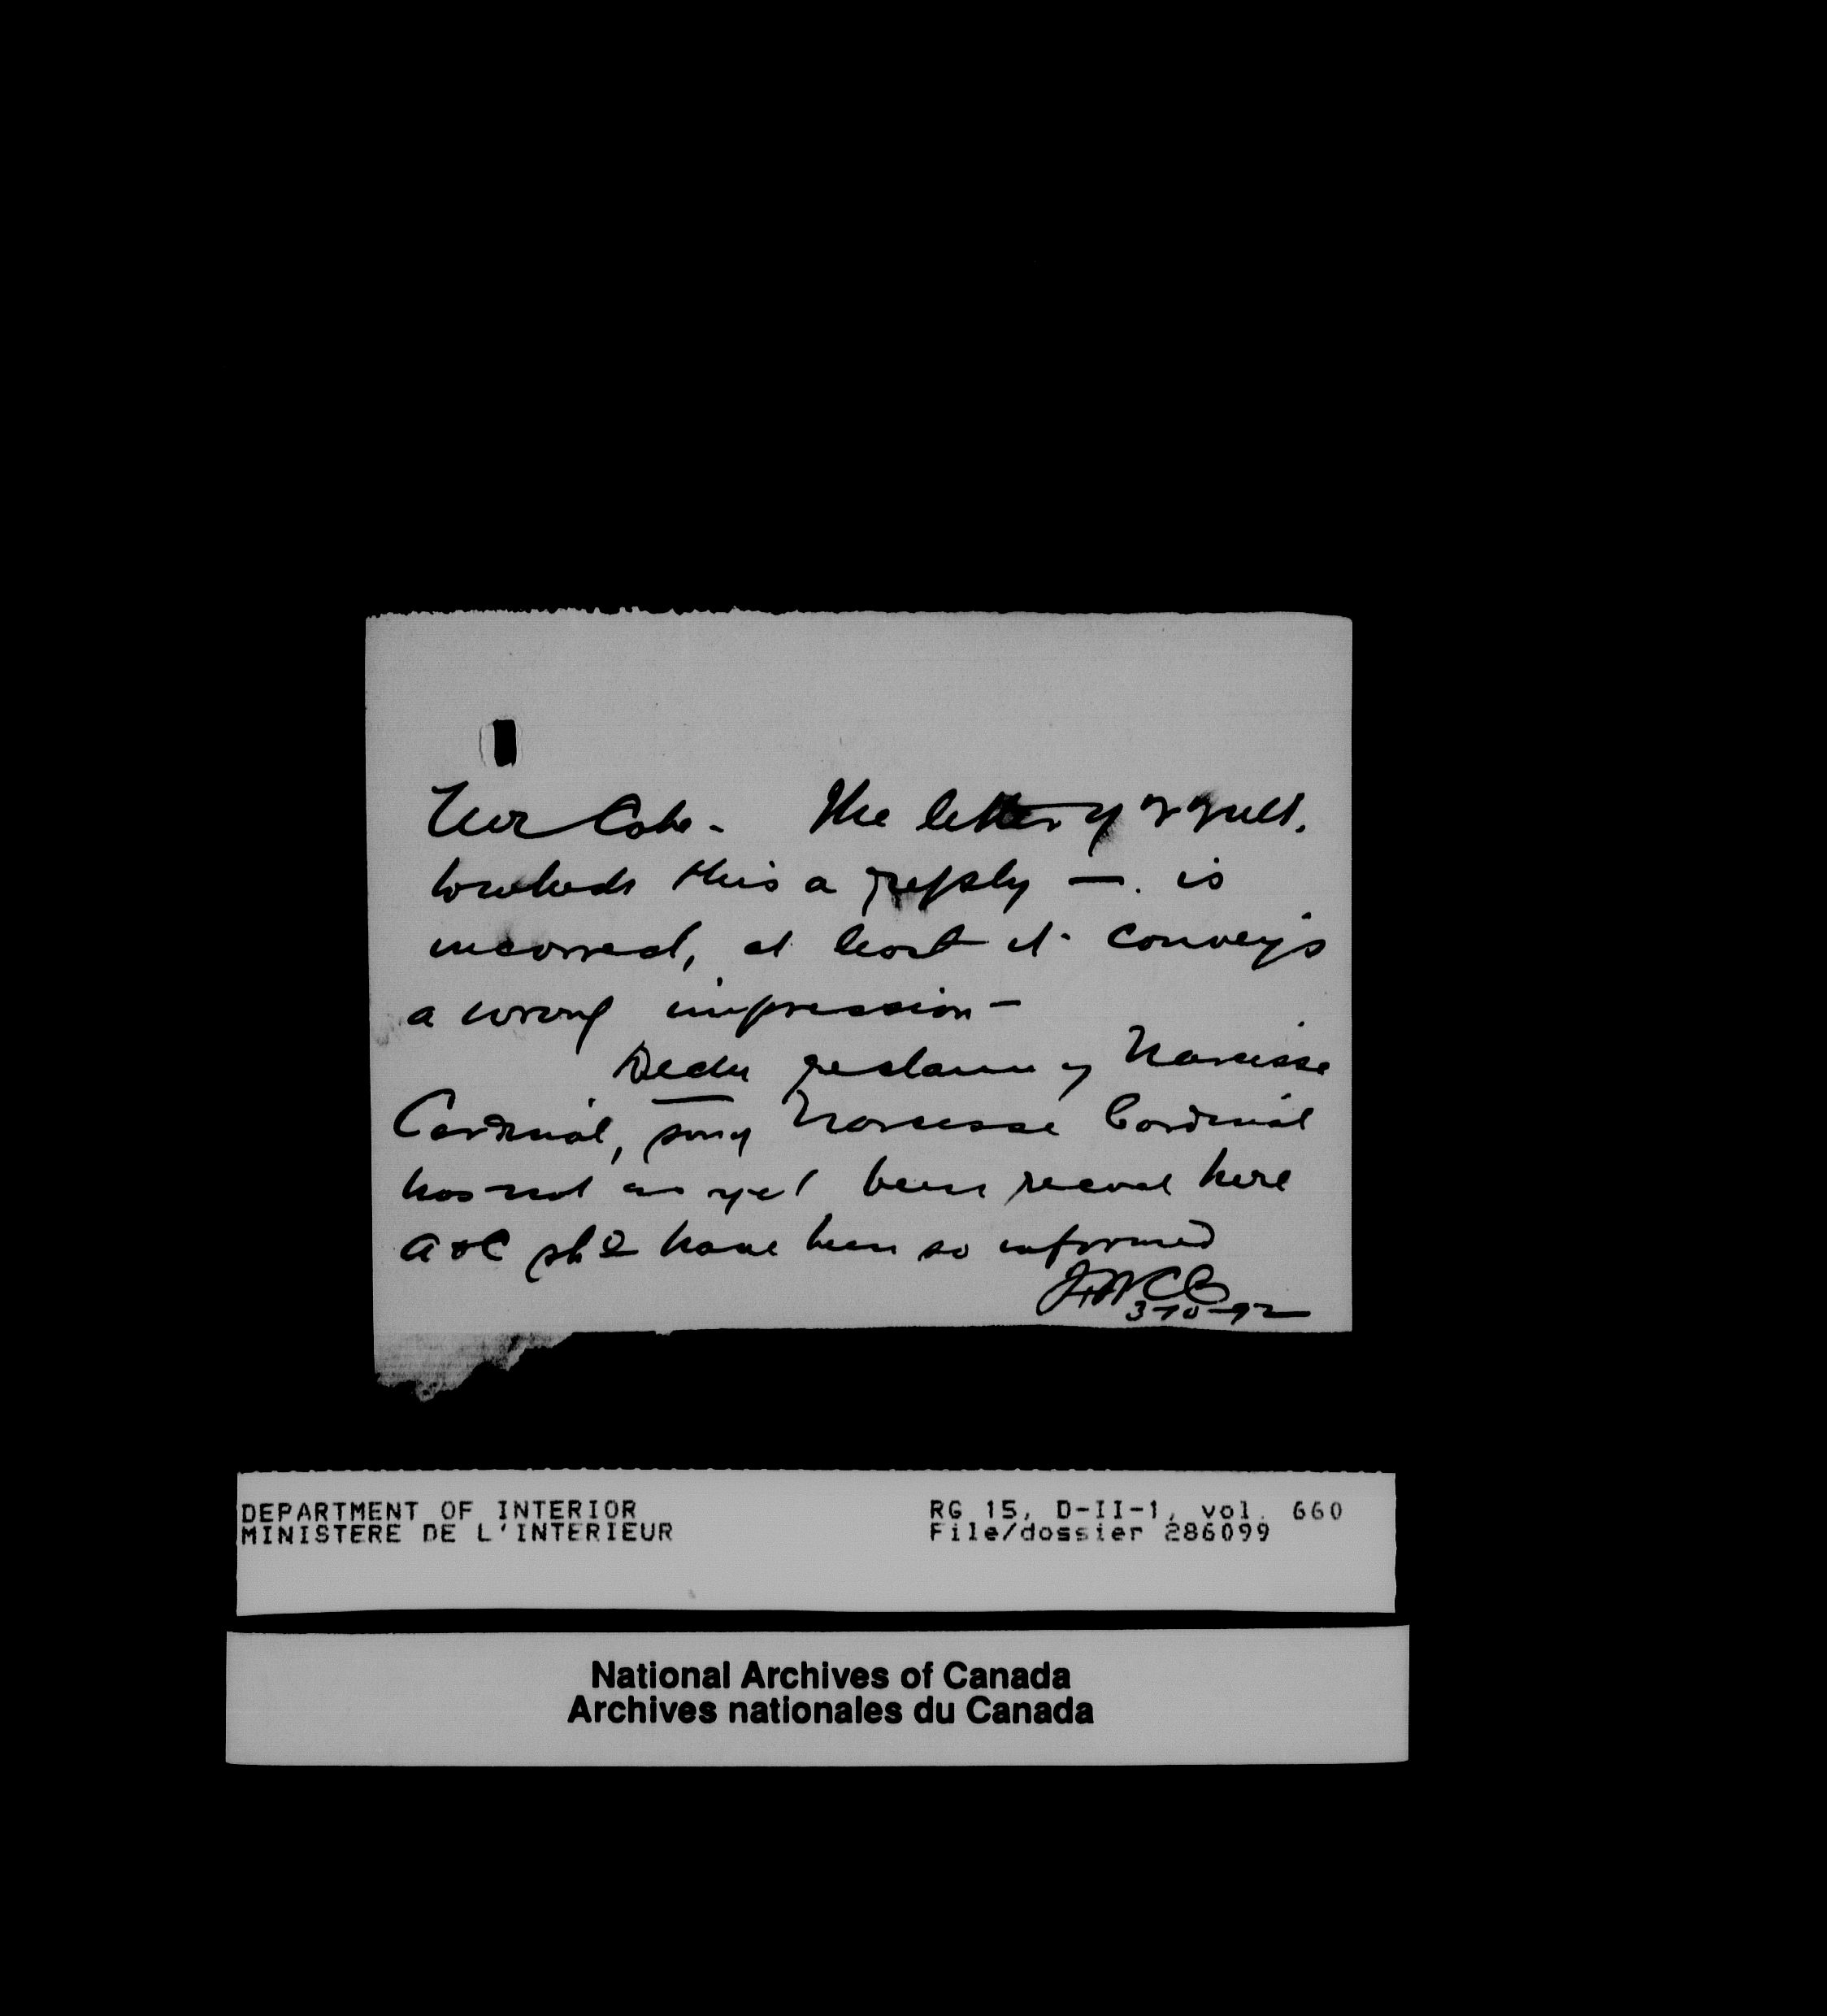 Mr Cole - The letter of
to which this a reply — is
incorrect, at least it conveys
a wrong impression -
of Narcisse
Cardinal, son of Narcisse Cardinal
has not as yet been recvd here
A & C shd have been so informed
3-10-92
DEPARTMENT OF INTERIOR RG 15, D-II-1, vol. 660
MINISTERE DE L'INTERIEUR File/dossier 286099
National Archives of Canada
Archives nationales du Canada